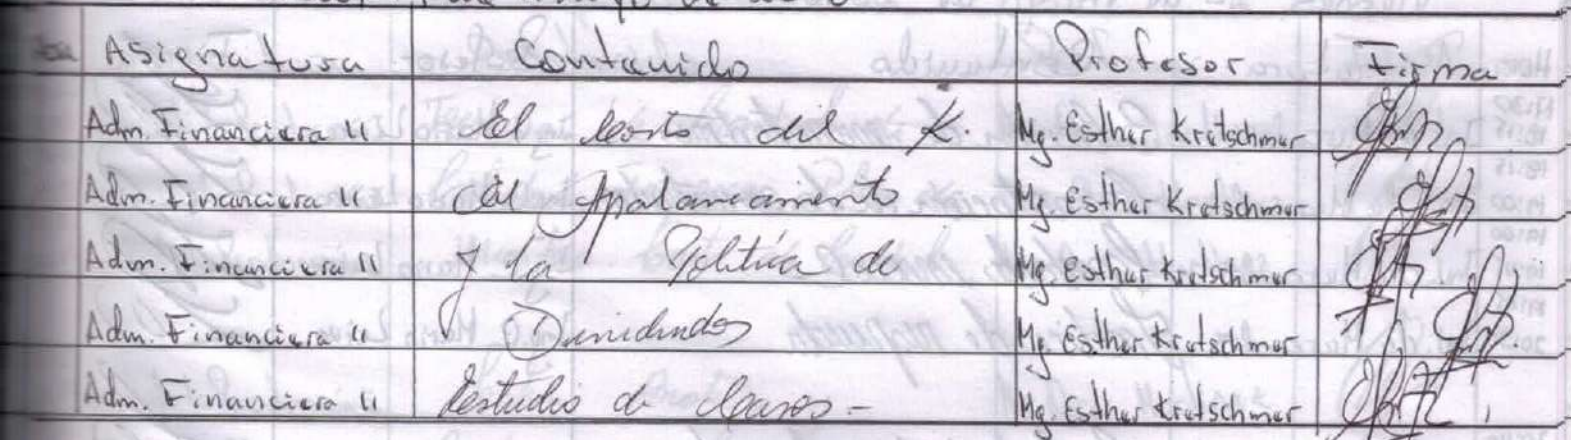 Asignatura Contenido Profesor Firma
Adm. Financiera II El Costo del K. Mg. Esther Kretschmer
Adm. Financiera II El Apalancamiento Mg. Esther Kretschmer
Adm. Financiera II y la Política de Mg. Esther Kretschmer
Adm. Financiera II Dividendos Mg. Esther Kretschmer
Adm. Financiera II Estudio de Casos - Mg. Esther Kretschmer